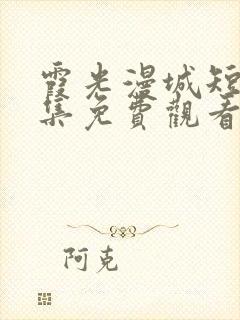 霞光漫城短
集免費觀看
阿克